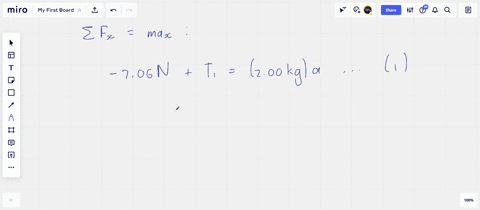 miro My First Board Share
∑Fₓ = maₓ :
-7.06N + T₁ = (2.00kg)a ... (1)
100%